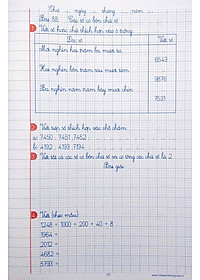 Thứ ... ngày ... tháng ... năm ...
Bài 88. Các số có bốn chữ số
1 Viết số hoặc chữ thích hợp vào ô trống
Đọc số Viết số
Một nghìn hai trăm ba mươi tư
6543
Hai nghìn bốn trăm sáu mươi tám
9876
Ba nghìn năm trăm bảy mươi chín
7631
2 Viết tiếp số thích hợp vào chỗ chấm:
a. 7450 . 7451 . 7452 .
b. 4192 . 4193 . 4194 .
3 Viết tất cả các số có bốn chữ số và có tổng các chữ số là 2.
Bài giải
4 Viết (theo mẫu)
1248 = 1000 + 200 + 40 + 8
1964 =
2012 =
4682 =
5793 =